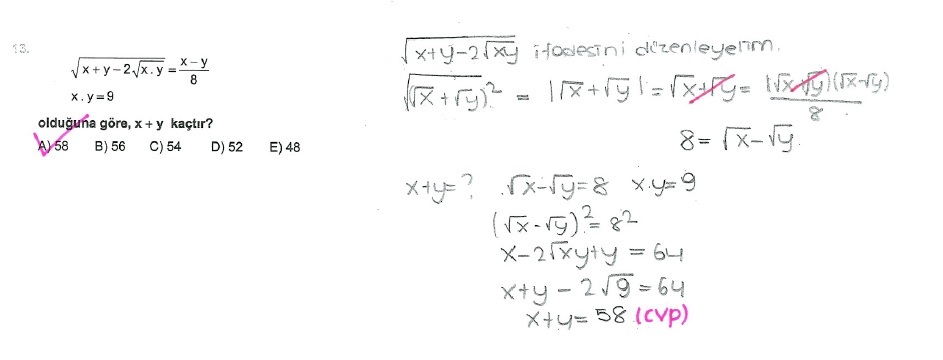 13.
√x+y−2√x.y = x−y/8
x.y=9
olduğuna göre, x+y kaçtır?
A) 58 B) 56 C) 54 D) 52 E) 48
√x+y−2√xy ifadesini düzenleyelim.
√(√x+√y)² = |√x+√y| = √x+√y = (√x+√y)(√x−√y)/8
8 = √x−√y.
x+y=? √x−√y=8 x.y=9
(√x−√y)²=8²
x−2√xy+y = 64
x+y − 2√9 = 64
x+y= 58 (CVP)